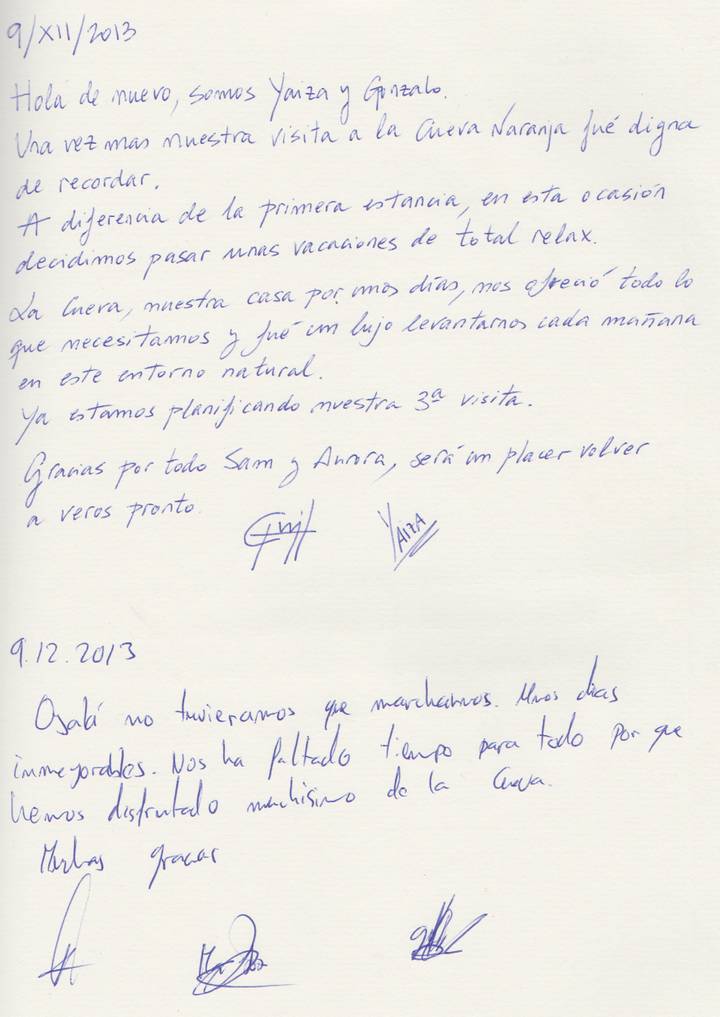 9/XII/2013
Hola de nuevo, somos Yaiza y Gonzalo.
Una vez mas nuestra visita a la Cueva Naranja fué digna
de recordar.
A diferencia de la primera estancia, en esta ocasión
decidimos pasar unas vacaciones de total relax.
La Cueva, nuestra casa por unos días, nos ofreció todo lo
que necesitamos y fué un lujo levantarnos cada mañana
en este entorno natural.
Ya estamos planificando nuestra 3ª visita.
Gracias por todo Sam y Aurora, será un placer volver
a veros pronto.
YAIZA
9.12.2013
Ojalá no tuvieramos que marcharnos. Unos dias
inmejorables. Nos ha faltado tiempo para todo por que
hemos disfrutado muchisimo de la Cueva.
Muchas gracias